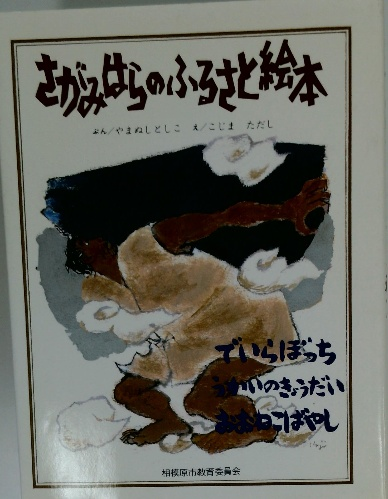 さがみはらのふるさと絵本
ぶん/やまぬしとしこ え/こじま ただし
でいらぼっち
うかいのきょうだい
ばやし
相模原市教育委員会